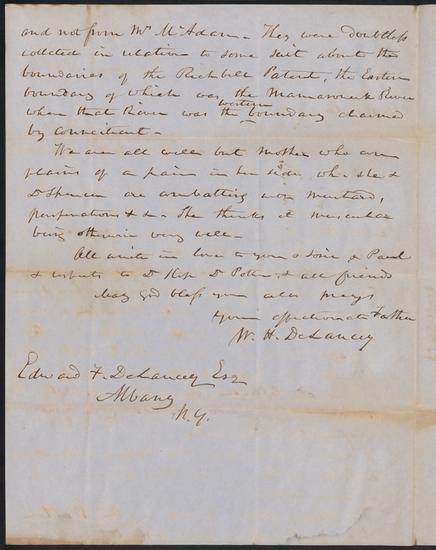 and not from Mr McAdam - They were doubtless
collected in relation to some suit about the
boundaries of the Richbell Patent, the Eastern
boundary of which was the Mamaroneck River
western
when that River was the boundary claimed
by Connecticut -
We are all well but Mother who com
plains of a pain in her side, wh. she &
Dr Spencer are combatting with mustard,
perspirations & &. She thinks it muscular
being otherwise very well -
All unite in love to you & Josie & Paul
& respects to Dr Dr Potter, & all friends
May God bless you all prays
Your affectionate Father
W. H. DeLancey
Edward F. DeLancey Esq
Albany
N. Y.